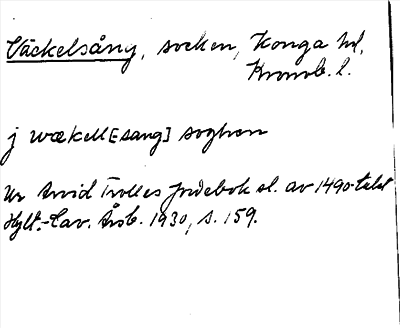 Väckelsång, socken, Konga hd,
Kronob. l.
j wækell[sang] soghon
Ur Arvid Trolles jordebok sl. av 1490-talet
Hylt.-Cav. Årsb. 1930, s. 159.